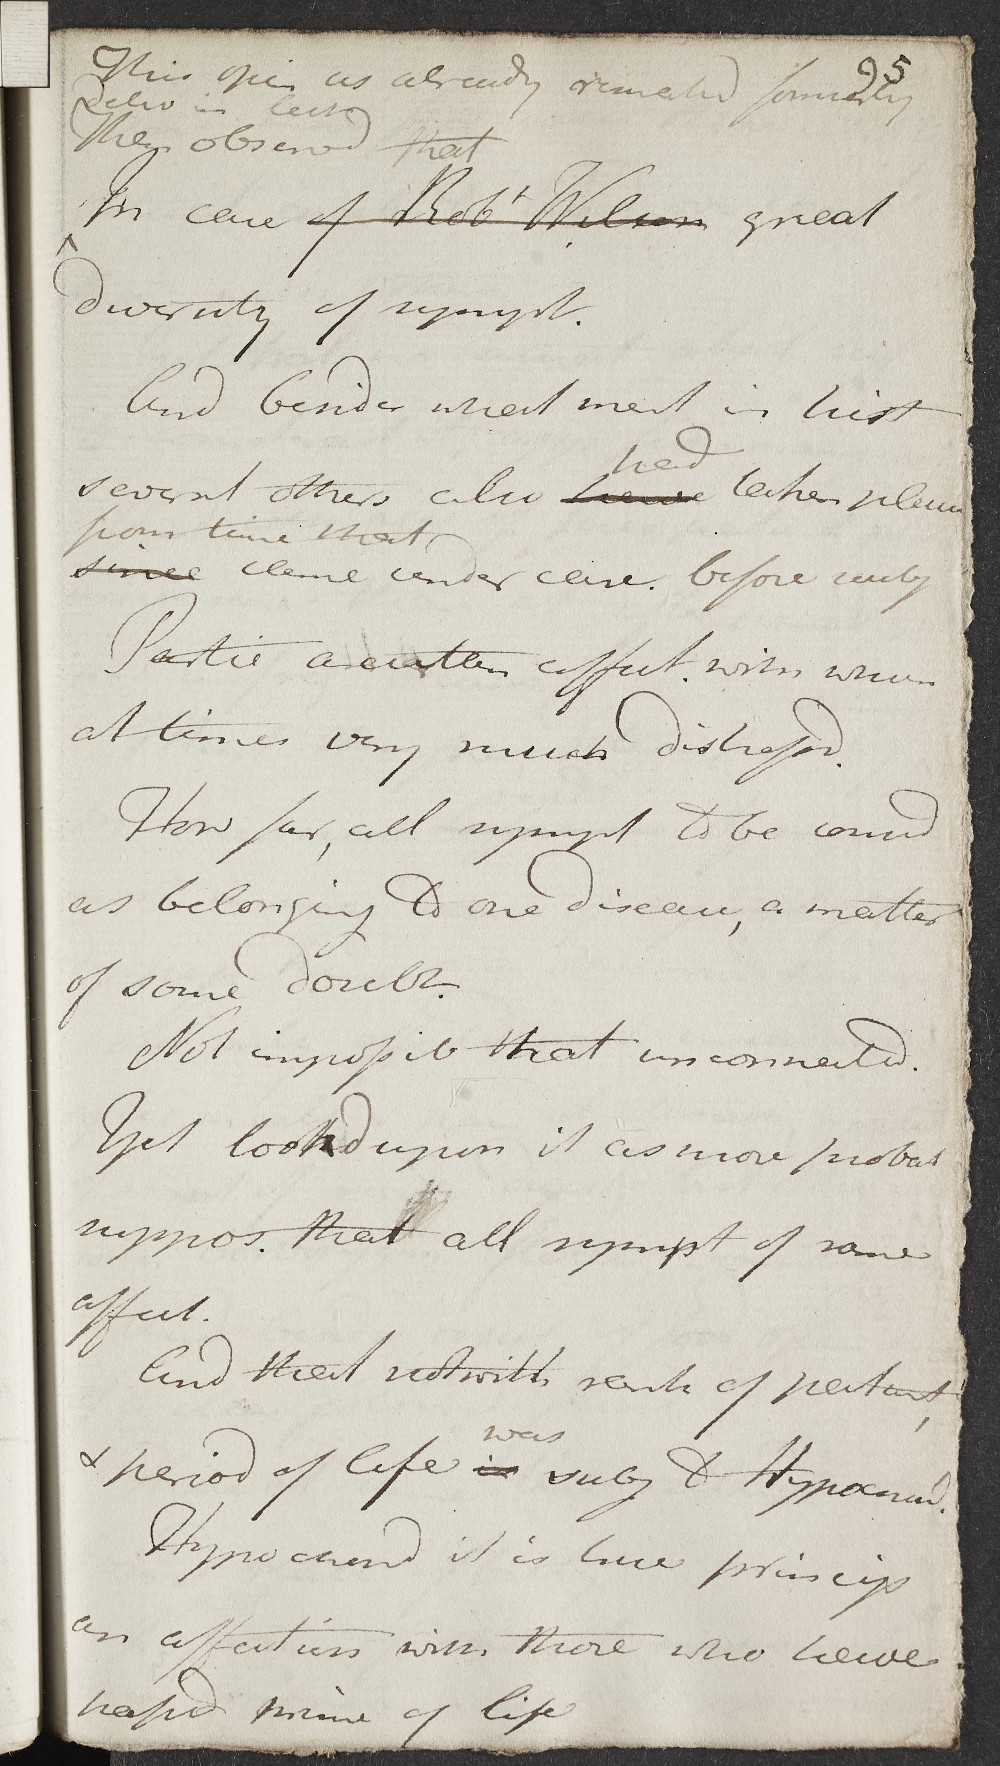 95
This opin as already remarkd formerly
I also in lect
then observd that
In case of Robt Wilson great
diversity of sympt.
And besides what ment in hist
several others also have had taken place
from time that
since came under care. before subj
Partic a cutan affect. with whic
at times very much distressd.
How far, all sympt to be consid
as belonging to one disease, a matter
of some doubt.
Not impossib that unconnectd.
Yet lookd upon it as more probab
suppos. that all sympt of same
affect.
And that notwith rank of patient,
& period of life is was subj to Hypochond.
Hypochond it is true princip
an affection with those who have
passd prime of life